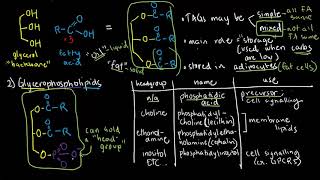 OH
OH
OH
glycerol
"backbone"
+
HO
O
C-R
×3
fatty acid
"oil" - liquid
"fat" - solid
O
O-C-R
O
O-C-R
O
O-C-R
• TAGs may be simple - all FA same
mixed - not all FA same
• main role = "storage"
(used when carbs are low)
• stored in adipocytes (fat cells)
2) Glycerophospholipids
O
O-C-R
O
O-C-R
O
P
can hold "head" group
headgroup name use
n/a phosphatidic acid precursor; cell signalling
choline phosphatidylcholine (lecithin) membrane lipids
ethanolamine phosphatidylethanolamine (cephalin)
inositol phosphatidylinositol cell signalling
ETC... (cn. GPCRs)